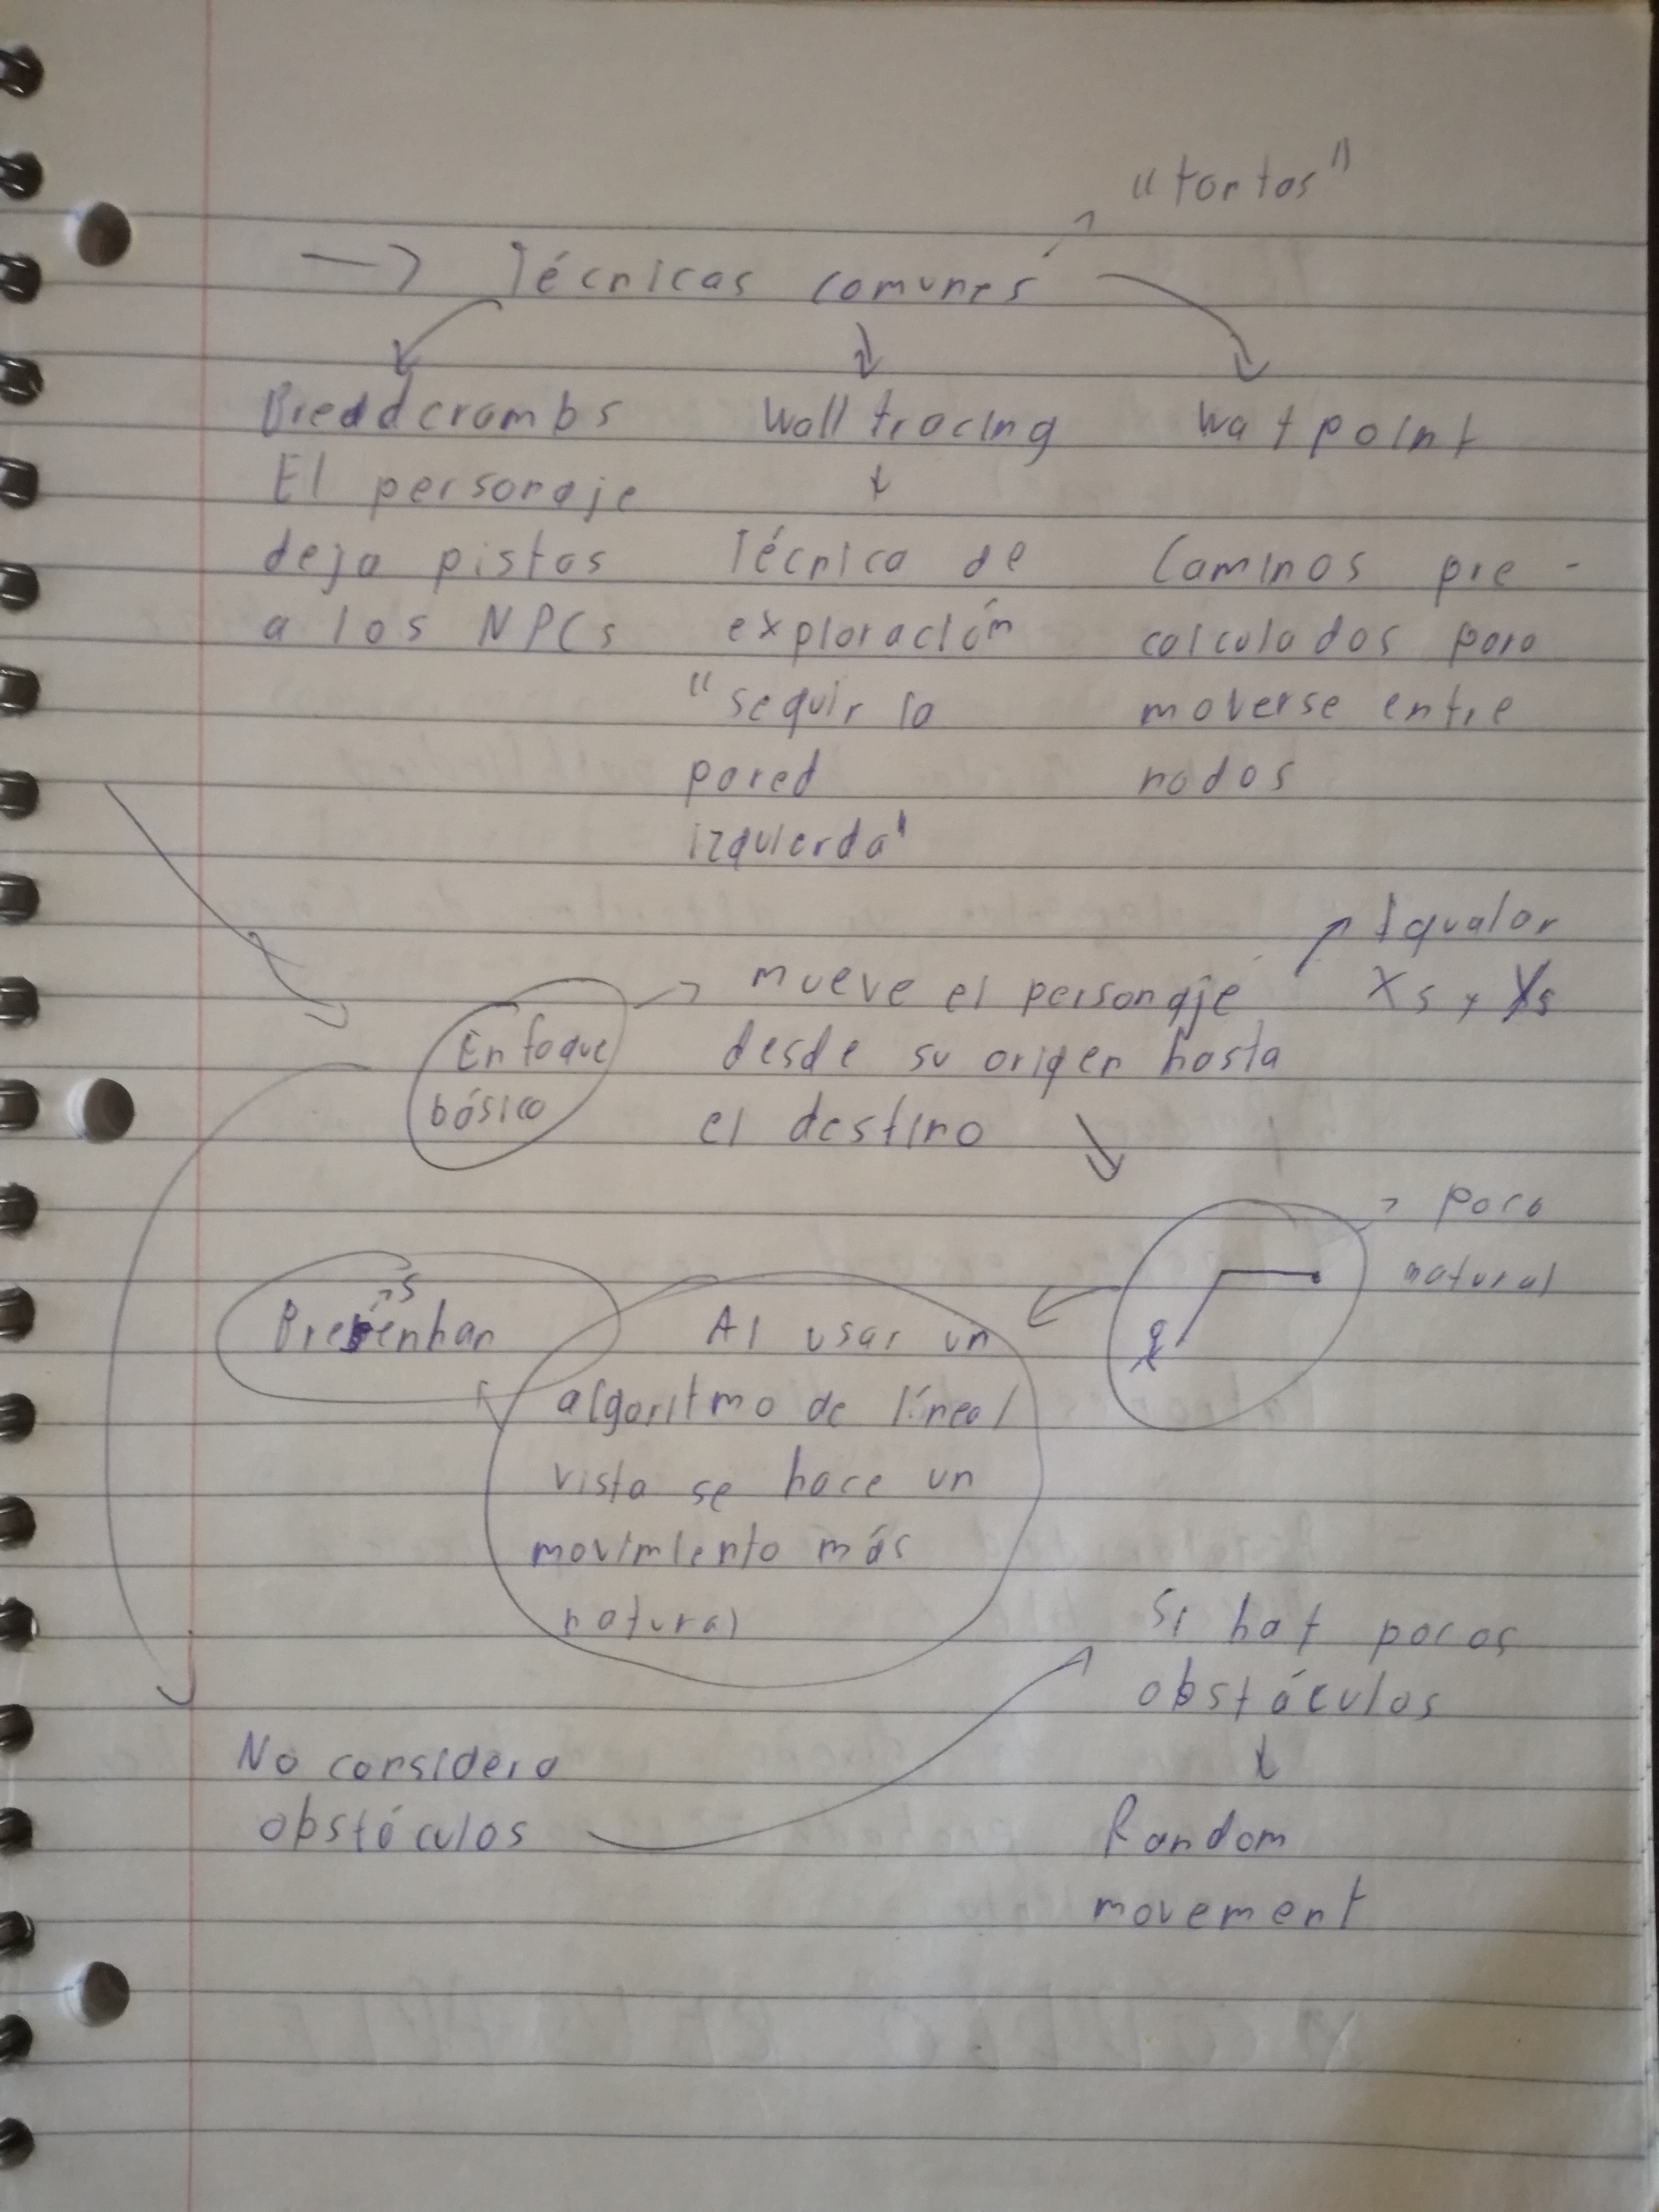 "tontos"
→ Técnicas comunes
Breadcrambs
El personaje
deja pistas
a los NPCs
Wall tracing
Técnica de
exploración
"seguir la
pared
izquierda"
Waypoint
Caminos pre-
calculados para
moverse entre
nodos
Enfoque
básico
mueve el personaje
desde su origen hasta
el destino
Igualar
Xs y Ys
poco
natural
Al usar un
algoritmo de línea
vista se hace un
movimiento más
natural
No considera
obstáculos
Si hay pocos
obstáculos
Random
movement